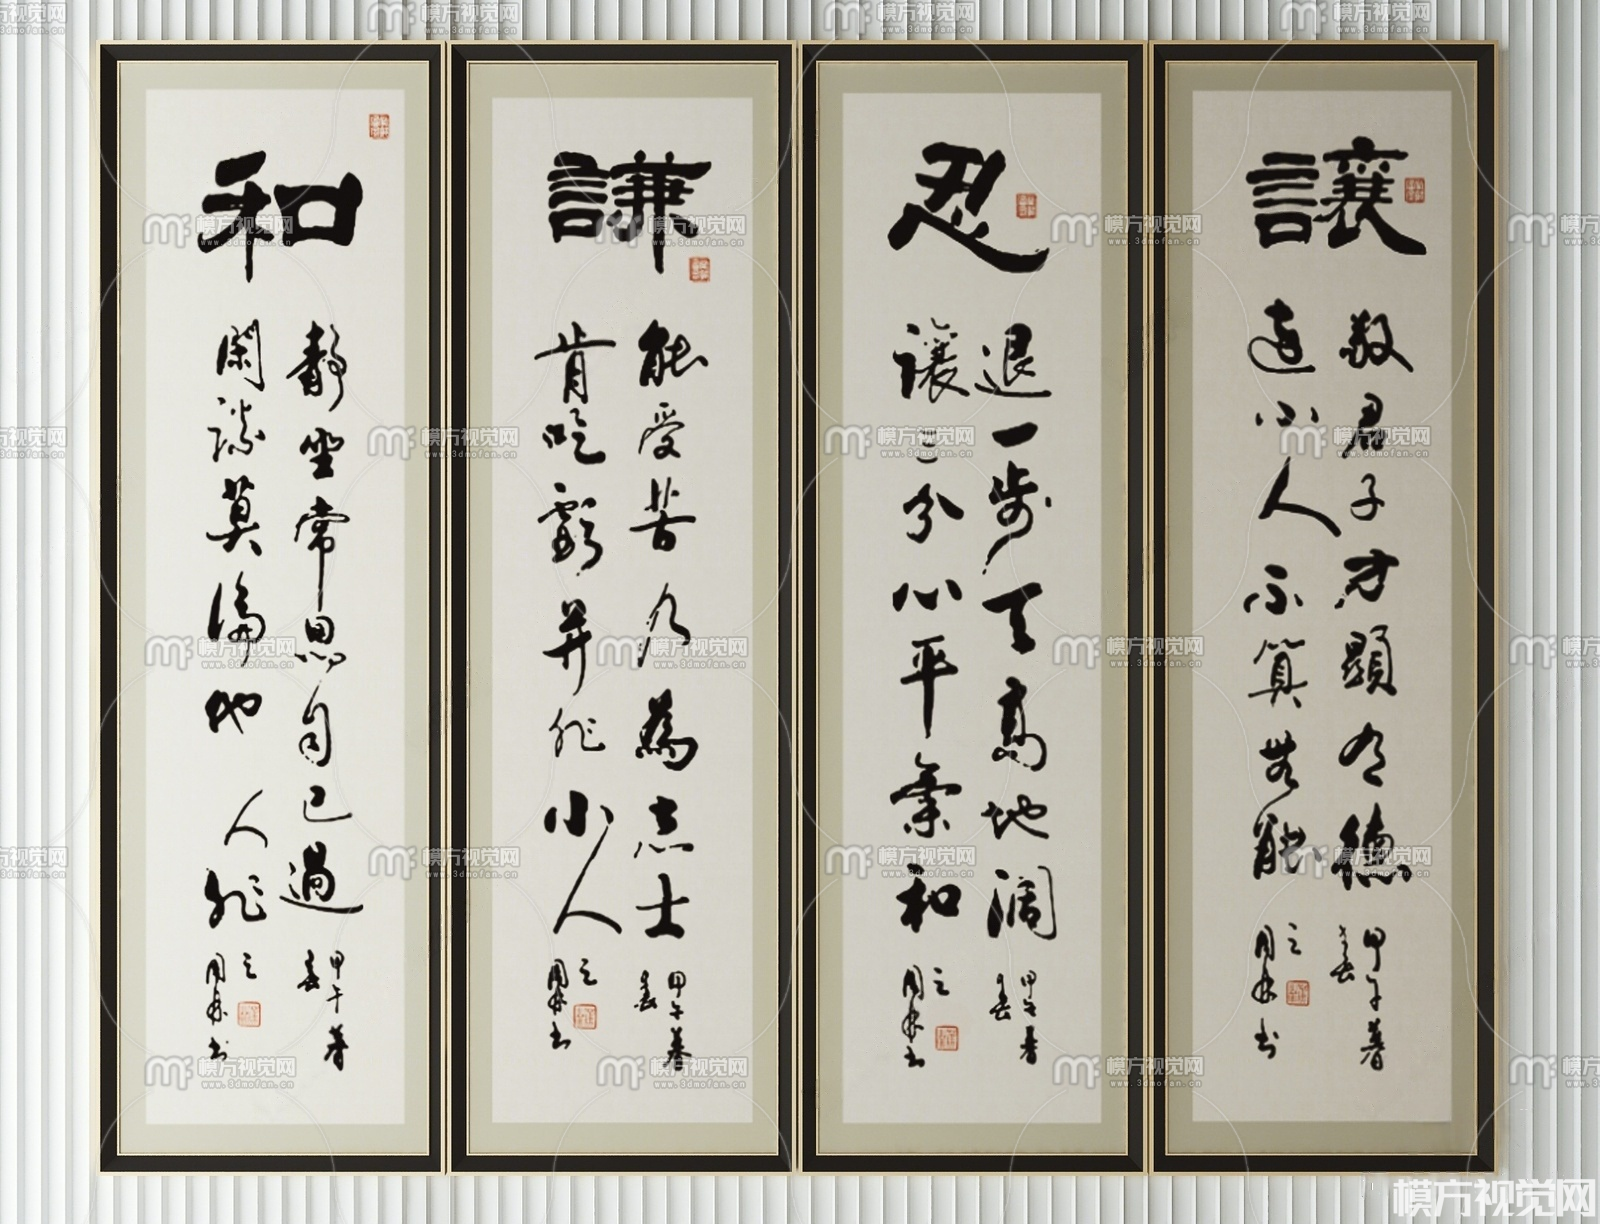 讓
敬君子方顯有德
遠小人不算無能
甲午暮
春
忍
退一步天高地阔
讓三分心平氣和
甲午暮
春
謙
能受苦乃為志士
肯吃虧并非小人
甲午暮
春
和
靜坐常思自己過
閑談莫論他人非
甲午暮
春
模方视觉网
www.3dmofan.cn
模方视觉网